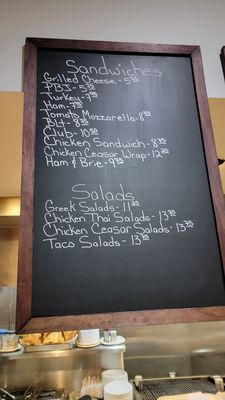 Sandwiches
Grilled Cheese - 5
PBJ - 5
Turkey - 7
Ham - 7
Tomato Mozzarella - 8
BLT - 8
Club - 10
Chicken Sandwich - 8
Chicken Ceasar Wrap - 12
Ham & Brie - 9
Salads
Greek Salads - 11
Chicken Thai Salads - 13
Chicken Ceasar Salads - 13
Taco Salads - 13